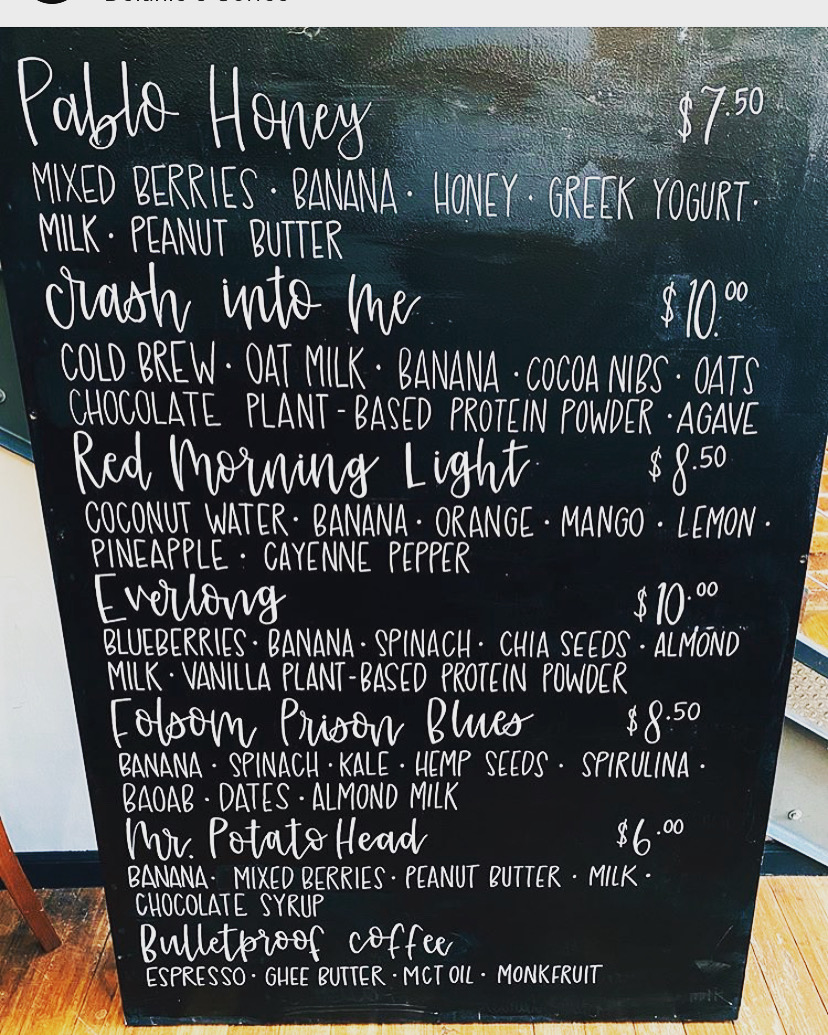 Pablo Honey $7.50
MIXED BERRIES · BANANA · HONEY · GREEK YOGURT ·
MILK · PEANUT BUTTER
Crash into Me $10.00
COLD BREW · OAT MILK · BANANA · COCOA NIBS · OATS
CHOCOLATE PLANT-BASED PROTEIN POWDER · AGAVE
Red Morning Light $8.50
COCONUT WATER · BANANA · ORANGE · MANGO · LEMON ·
PINEAPPLE · CAYENNE PEPPER
Everlong $10.00
BLUEBERRIES · BANANA · SPINACH · CHIA SEEDS · ALMOND
MILK · VANILLA PLANT-BASED PROTEIN POWDER
Folsom Prison Blues $8.50
BANANA · SPINACH · KALE · HEMP SEEDS · SPIRULINA ·
BAOAB · DATES · ALMOND MILK
Mr. Potato Head $6.00
BANANA · MIXED BERRIES · PEANUT BUTTER · MILK ·
CHOCOLATE SYRUP
Bulletproof coffee
ESPRESSO · GHEE BUTTER · MCT OIL · MONKFRUIT